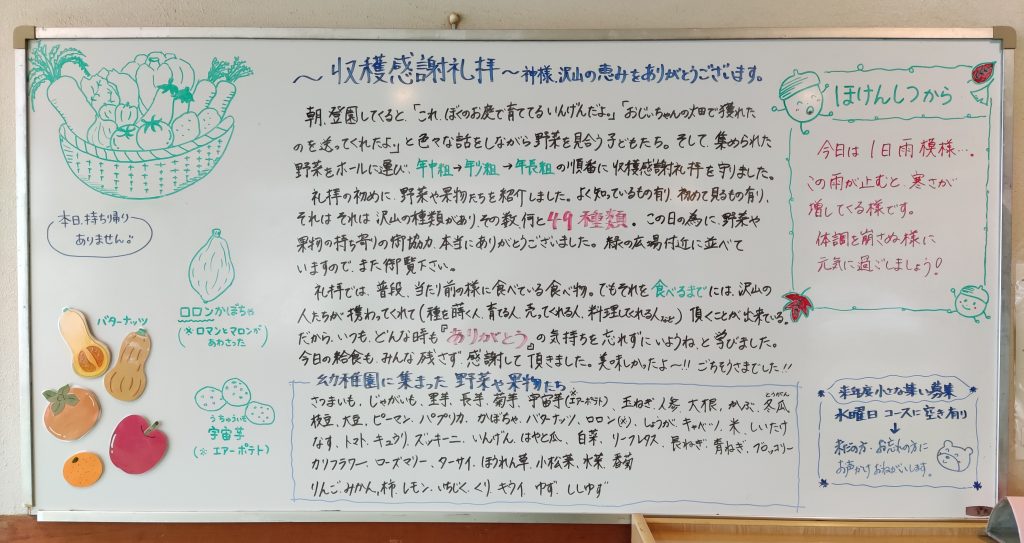 ～収穫感謝礼拝～神様、沢山の恵みをありがとうございます。
朝、登園してくると、「これ、ぼくのお庭で育ててるいんげんだよ。」「おじいちゃんの畑で獲れた
のを送ってくれたよ。」と色々な話をしながら野菜を見合う子どもたち。そして、集められた
野菜をホールに運び、年中組→年少組→年長組の順番に収穫感謝礼拝を守りました。
礼拝の初めに、野菜や果物たちを紹介しました。よく知っているもの有り、初めて見るもの有り、
それはそれは沢山の種類があり、その数、何と49種類。この日の為に、野菜や
果物の持ち寄りの御協力、本当にありがとうございました。緑の広場付近に並べて
いますので、また御覧下さい。
礼拝では、普段、当たり前の様に食べている食べ物。でもそれを食べるまでには、沢山の
人たちが携わってくれて(種を蒔く人、育てる人、売ってくれる人、料理してくれる人など)頂くことが出来ている。
だから、いつも、どんな時も『ありがとう』の気持ちを忘れずにいようね、と学びました。
今日の給食も、みんな残さず、感謝して頂きました。美味しかったよ～!!ごちそうさまでした!!
幼稚園に集まった野菜や果物たち
さつまいも、じゃがいも、里芋、長芋、菊芋、宇宙芋(エアーポテト)、玉ねぎ、人参、大根、かぶ、冬瓜
とうがん
枝豆、大豆、ピーマン、パプリカ、かぼちゃ、バターナッツ、ロロン(※)、しょうが、キャベツ、米、しいたけ
なす、トマト、キュウリ、ズッキーニ、いんげん、はやと瓜、白菜、リーフレタス、長ねぎ、青ねぎ、ブロッコリー
カリフラワー、ローズマリー、ターサイ、ほうれん草、小松菜、水菜、春菊
りんご、みかん、柿、レモン、いちじく、くり、キウイ、ゆず、ししゆず
本日、持ち帰り
ありません。
ロロンかぼちゃ
(※ロマンとマロンが
あわさった)
バターナッツ
うちゅういも
宇宙芋
(※エアーポテト)
ほけんしつから
今日は1日雨模様…。
この雨が止むと、寒さが
増してくる様です。
体調を崩さぬ様に
元気に過ごしましょう!
来年度小さな集い募集
水曜日コースに空き有り
↓
未定の方・お忘れの方に
お声かけおねがいします。